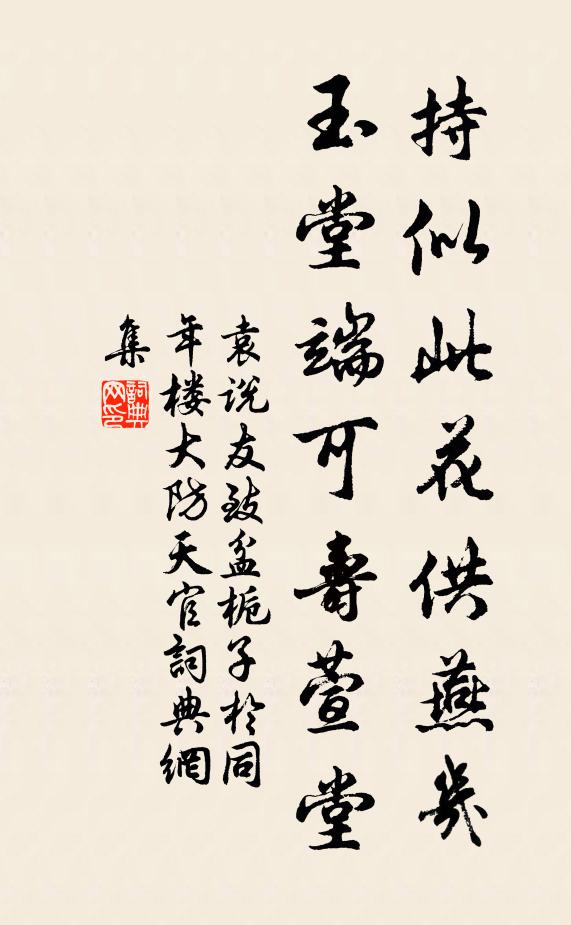 持似此花供燕几
玉堂端可寿萱堂
袁说友致盆栀子於同
年楼大防天官詞典網
集
詞典网印